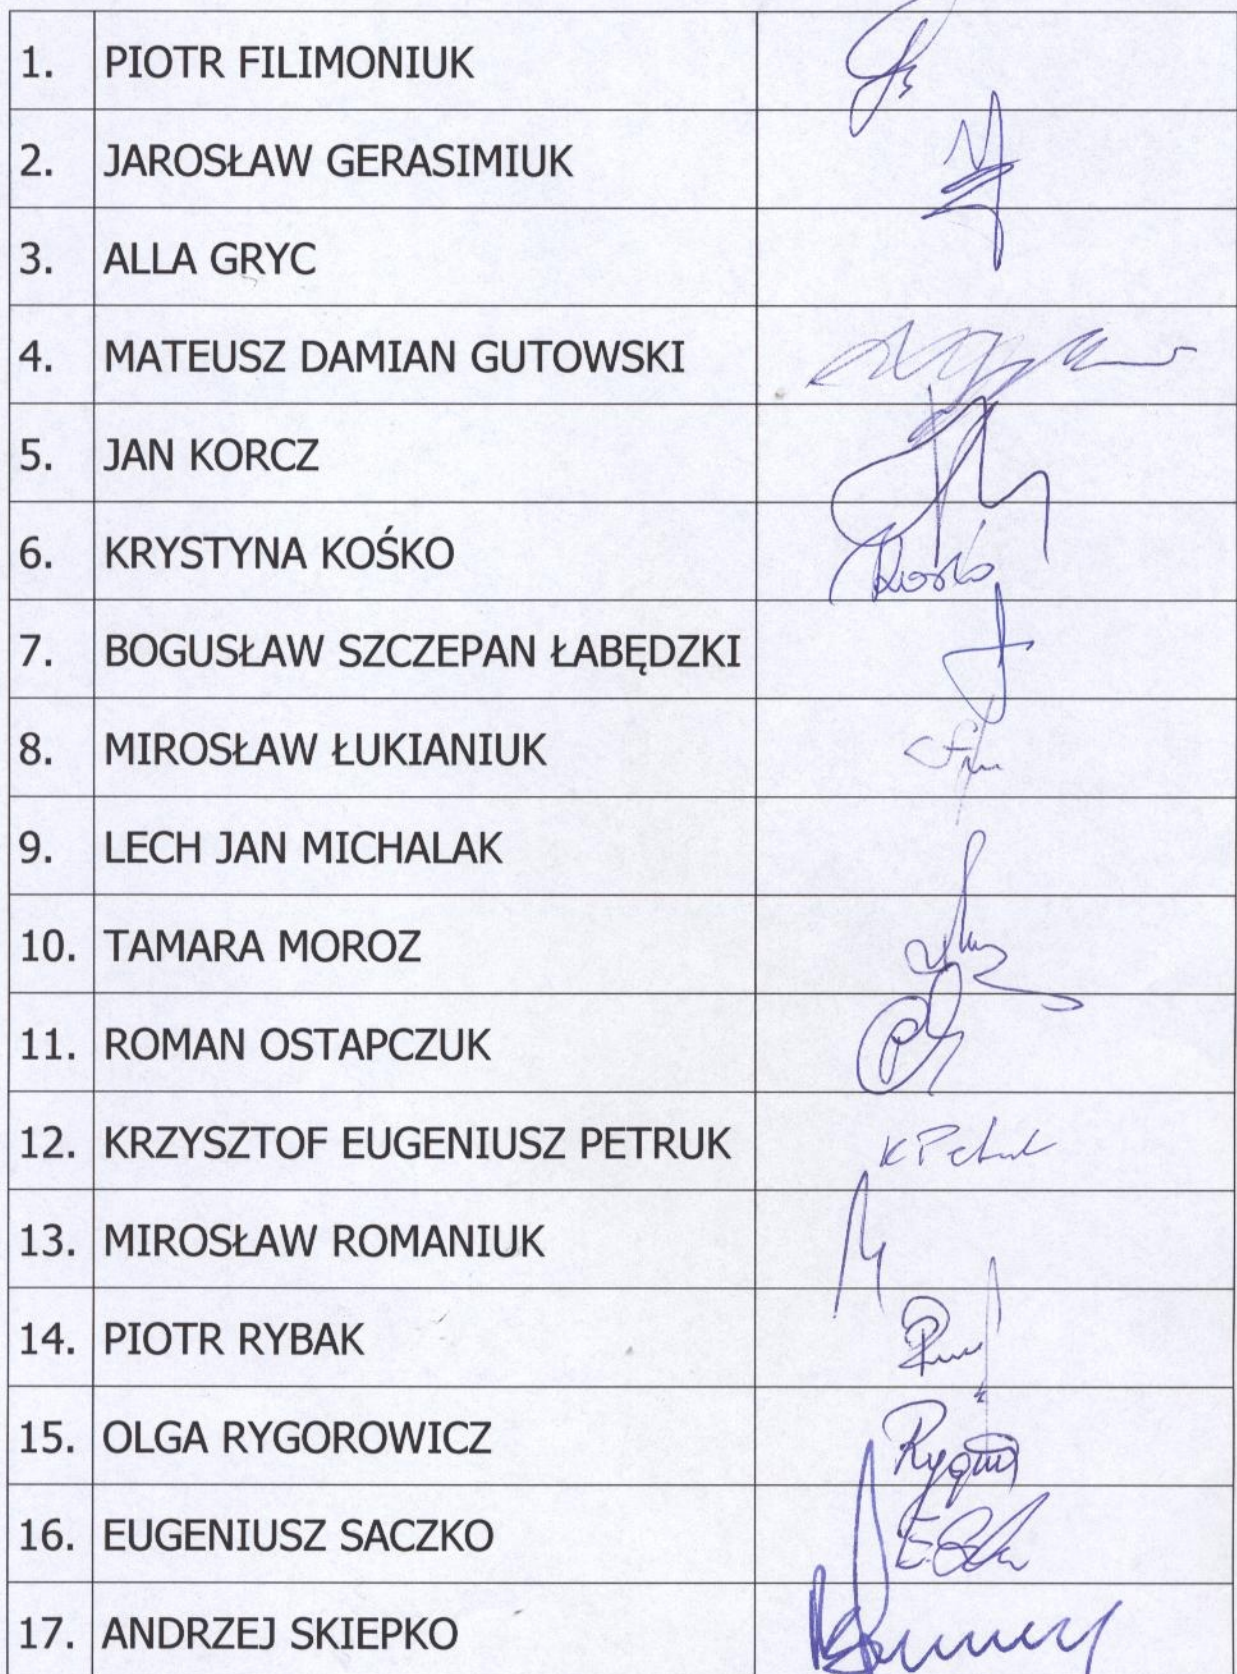 1. PIOTR FILIMONIUK
2. JAROSŁAW GERASIMIUK
3. ALLA GRYC
4. MATEUSZ DAMIAN GUTOWSKI
5. JAN KORCZ
6. KRYSTYNA KOŚKO Kośko
7. BOGUSŁAW SZCZEPAN ŁABĘDZKI
8. MIROSŁAW ŁUKIANIUK
9. LECH JAN MICHALAK
10. TAMARA MOROZ
11. ROMAN OSTAPCZUK
12. KRZYSZTOF EUGENIUSZ PETRUK K Petruk
13. MIROSŁAW ROMANIUK
14. PIOTR RYBAK
15. OLGA RYGOROWICZ
16. EUGENIUSZ SACZKO
17. ANDRZEJ SKIEPKO